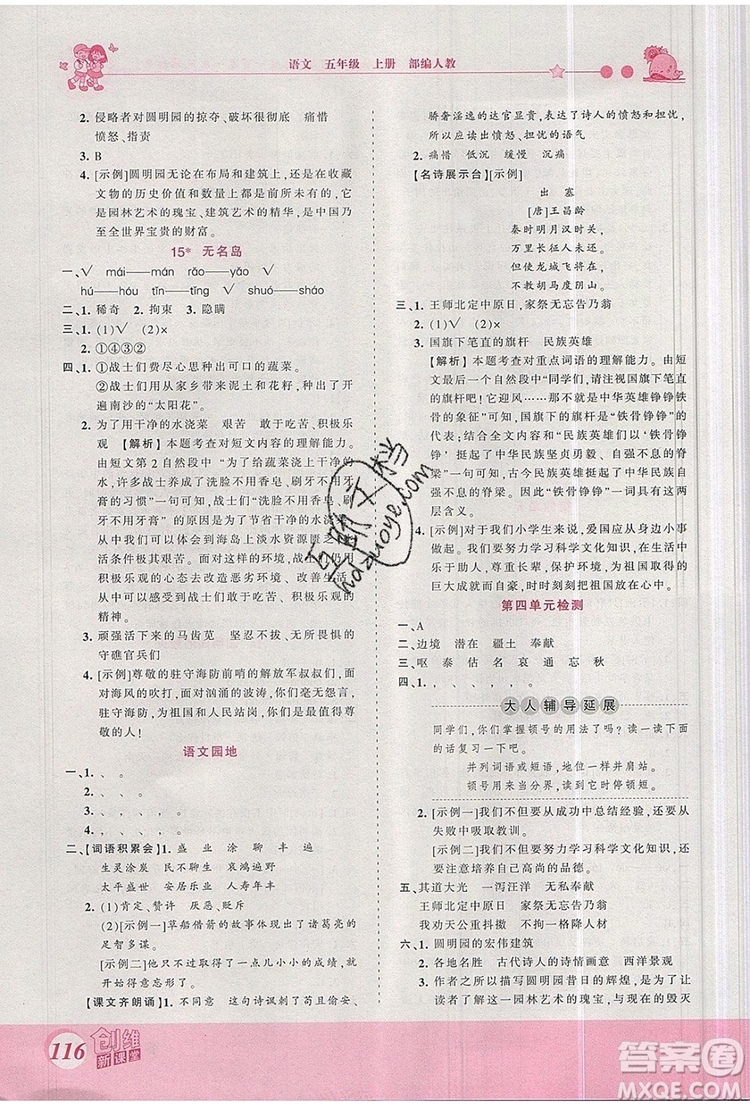 语文 五年级 上册 部编人教
2. 侵略者对圆明园的掠夺、破坏很彻底 痛惜
愤怒、指责
3. B
4. [示例]圆明园无论在布局和建筑上,还是在收藏
文物的历史价值和数量上都是非常突出的,
它是园林艺术的瑰宝、建筑艺术的精华,是中国乃
至全世界宝贵的财富。
15* 无名岛
一、√ mái——mán rǎo——yǎo
hú——hóu tīn——tīng √ shuó——sháo
二、1. 稀奇 2. 拘束 3. 隐瞒
三、1. (1)√ (2)×
2. ①④③②
四、1. ①战士们费尽心思种出可爱的蔬菜。
②战士们从家乡带来泥土和花籽,种植出开
遍南沙的“太阳花”。
2. 为了用干净的水浇菜 艰苦 敢于吃苦、积极乐
观 【解析】本题考查对短文内容的理解能力。
由短文第2自然段中的“为了给蔬菜浇上干净的
水,许多战士们养成了洗脸不用香皂、刷牙不用牙
膏的习惯”可知,战士们“洗脸不用香皂、刷
牙不用牙膏”的原因是为了节省干净的水浇菜,
从这件事情可以体会到海岛上淡水资源匮乏、生
活条件极其艰苦。面对这样的环境,战士们仍用
积极的心态去改造恶劣环境、改善生活
的行动可以体现出战士们敢于吃苦、积极乐观的
精神。
3. 顽强活下来的马齿苋 坚忍不拔、以苦为乐的
守礁官兵们
4. [示例]尊敬的驻守海防前哨的解放军叔叔们,面
对海风的吹打,面对汹涌的波涛,你们依然坚
守海防,为祖国和人民站岗,你们是最值得尊敬
的人!
语文园地
一、1. 、 、 。
2. 、 、 。
3. 、 、 。
4. 、 、 。
二、【词语积累会】1. 盛 业 涂 聊 丰 遍
生灵涂炭 民不聊生 哀鸿遍野
太平盛世 安居乐业 人寿年丰
2. (1)肯定、赞许 厌恶、贬斥
(2)[示例一]草船借箭的故事突出表现了诸葛亮的
足智多谋。
[示例二]一个人如果为了一点儿小成绩就得意忘
形,将来肯定是要栽跟头的。
【课文齐朗诵】1. 不同意 这句诗讽刺了苟且偷安、
骄奢淫逸的达官显贵,表达了诗人的愤怒和担忧,
所以应读出愤怒、担忧的语气
2. 痛惜 低沉 缓慢 沉痛
【名诗展示台】[示例]
出 塞
[唐]王昌龄
秦时明月汉时关,
万里长征人未还。
但使龙城飞将在,
不教胡马度阴山。
三、1. 王师北定中原日,家祭无忘告乃翁
2. (1)√ (2)×
3. 国旗下笔直的旗杆 民族英雄
【解析】本题考查对重点词语的理解能力。由短
文最后一个自然段中“同学们,请注视国旗下笔直
的旗杆!它庄严、威武,那不就是中华英雄铮铮铁
骨的象征”可知,国旗下的旗杆是“铁骨铮铮”的
代表;结合全文所列举的民族英雄和文中“铁骨铮
铮,代表着中华民族坚贞勇毅、自强不息的脊梁,
是中华民族的脊梁”一句可知,古今民族英雄是中华
民族的脊梁。因此,“铁骨铮铮”一词的含义有两
层含义。
4. [示例]对于我们小学生来说,爱国应从身边小事
做起。我们要努力学习科学文化知识,在生活中
乐于助人、热爱科学、保护环境,时刻为祖国取得的
巨大成就而自豪,时时刻刻把祖国放在心中。
第四单元检测
一、A
二、边境 潜在 疆土 奉献
三、呕 泰 估 名 哀 通 忘 秋
四、1. 、 、 、 、 、
大人辅导延展
同学们,你们掌握顿号的用法了吗?读一读下面
的话复习一下吧。
并列词语或短语,亲密相处并肩站。
顿号用来当分界,读到它时停顿短。
2. [示例一]我们不但要从成功中总结经验,还要从
失败中吸取教训。
[示例二]我们不但要努力学习科学文化知识,还
要注意培养自己高尚的品德。
五、其道大光 一泻汪洋 无私奉献
王师北定中原日 家祭无忘告乃翁
我劝天公重抖擞 不拘一格降人材
六、1. 圆明园的宏伟建筑
2. 各地名胜 古代诗人的诗情画意 西洋景观
3. 作者之所以描写圆明园昔日的辉煌,是为了让
读者了解这一园林艺术的瑰宝,与现在的毁灭
116
创维
新课堂
早阶文档
hdzuoye.com
答案卷
MXQE.COM